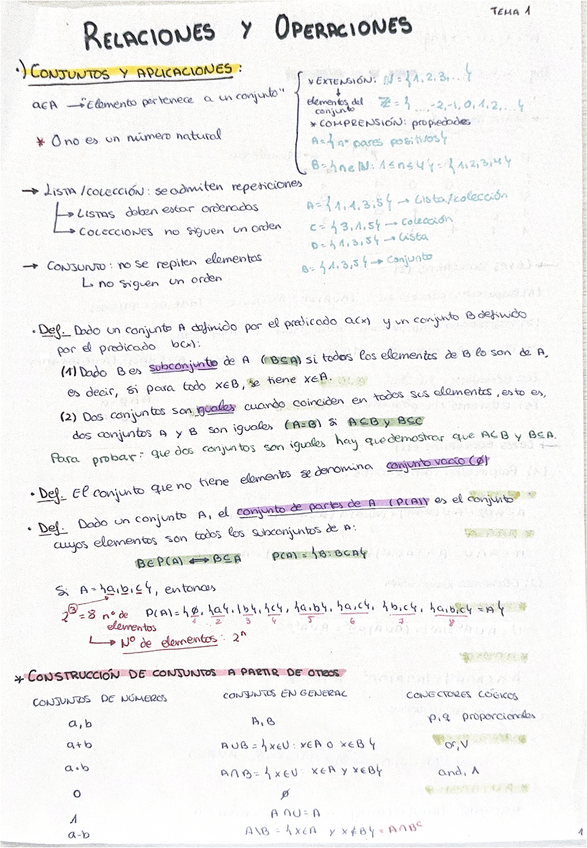 TEMA 1
RELACIONES Y OPERACIONES
·) CONJUNTOS Y APLICACIONES:
a∈A → "Elemento pertenece a un conjunto"
* 0 no es un número natural
v EXTENSIÓN: ℕ = {1,2,3,...}
elementos del conjunto ℤ = {...,-2,-1,0,1,2,...}
* COMPRENSIÓN: propiedades
A = {nº pares positivos}
B = {n∈ℕ: 1≤n≤4} = {1,2,3,4}
→ LISTA/COLECCIÓN: se admiten repeticiones
↳ LISTAS deben estar ordenadas
↳ COLECCIONES no siguen un orden
A = {1,1,3,5} → Lista/colección
C = {3,1,5} → Colección
D = {1,3,5} → Lista
B = {1,3,5} → Conjunto
→ CONJUNTO: no se repiten elementos
↳ no siguen un orden
· Def: Dado un conjunto A definido por el predicado a(x) y un conjunto B definido
por el predicado b(x):
(1) Dado B es subconjunto de A (B⊆A) si todos los elementos de B lo son de A,
es decir, si para todo x∈B, se tiene x∈A.
(2) Dos conjuntos son iguales cuando coinciden en todos sus elementos, esto es,
dos conjuntos A y B son iguales (A=B) si A⊆B y B⊆C
Para probar: que dos conjuntos son iguales hay que demostrar que A⊆B y B⊆A.
· Def: El conjunto que no tiene elementos se denomina conjunto vacío (∅)
· Def: Dado un conjunto A, el conjunto de partes de A (P(A)) es el conjunto
cuyos elementos son todos los subconjuntos de A:
B∈P(A) ↔ B⊆A P(A) = {B: B⊆A}
Si A = {a,b,c}, entonces
2³ = 8 nº de elementos P(A) = {∅, {a}, {b}, {c}, {a,b}, {a,c}, {b,c}, {a,b,c} = A}
1 2 3 4 5 6 7 8
↳ Nº de elementos: 2ⁿ
* CONSTRUCCIÓN DE CONJUNTOS A PARTIR DE OTROS
CONJUNTOS DE NÚMEROS CONJUNTOS EN GENERAL CONECTORES LÓGICOS
a,b A,B p,q proporcionales
a+b A∪B = {x∈U: x∈A o x∈B} or, ∨
a·b A∩B = {x∈U: x∈A y x∈B} and, ∧
0 ∅
1 A∩U = A
a-b A\B = {x∈A y x∉B} = A∩Bᶜ
1